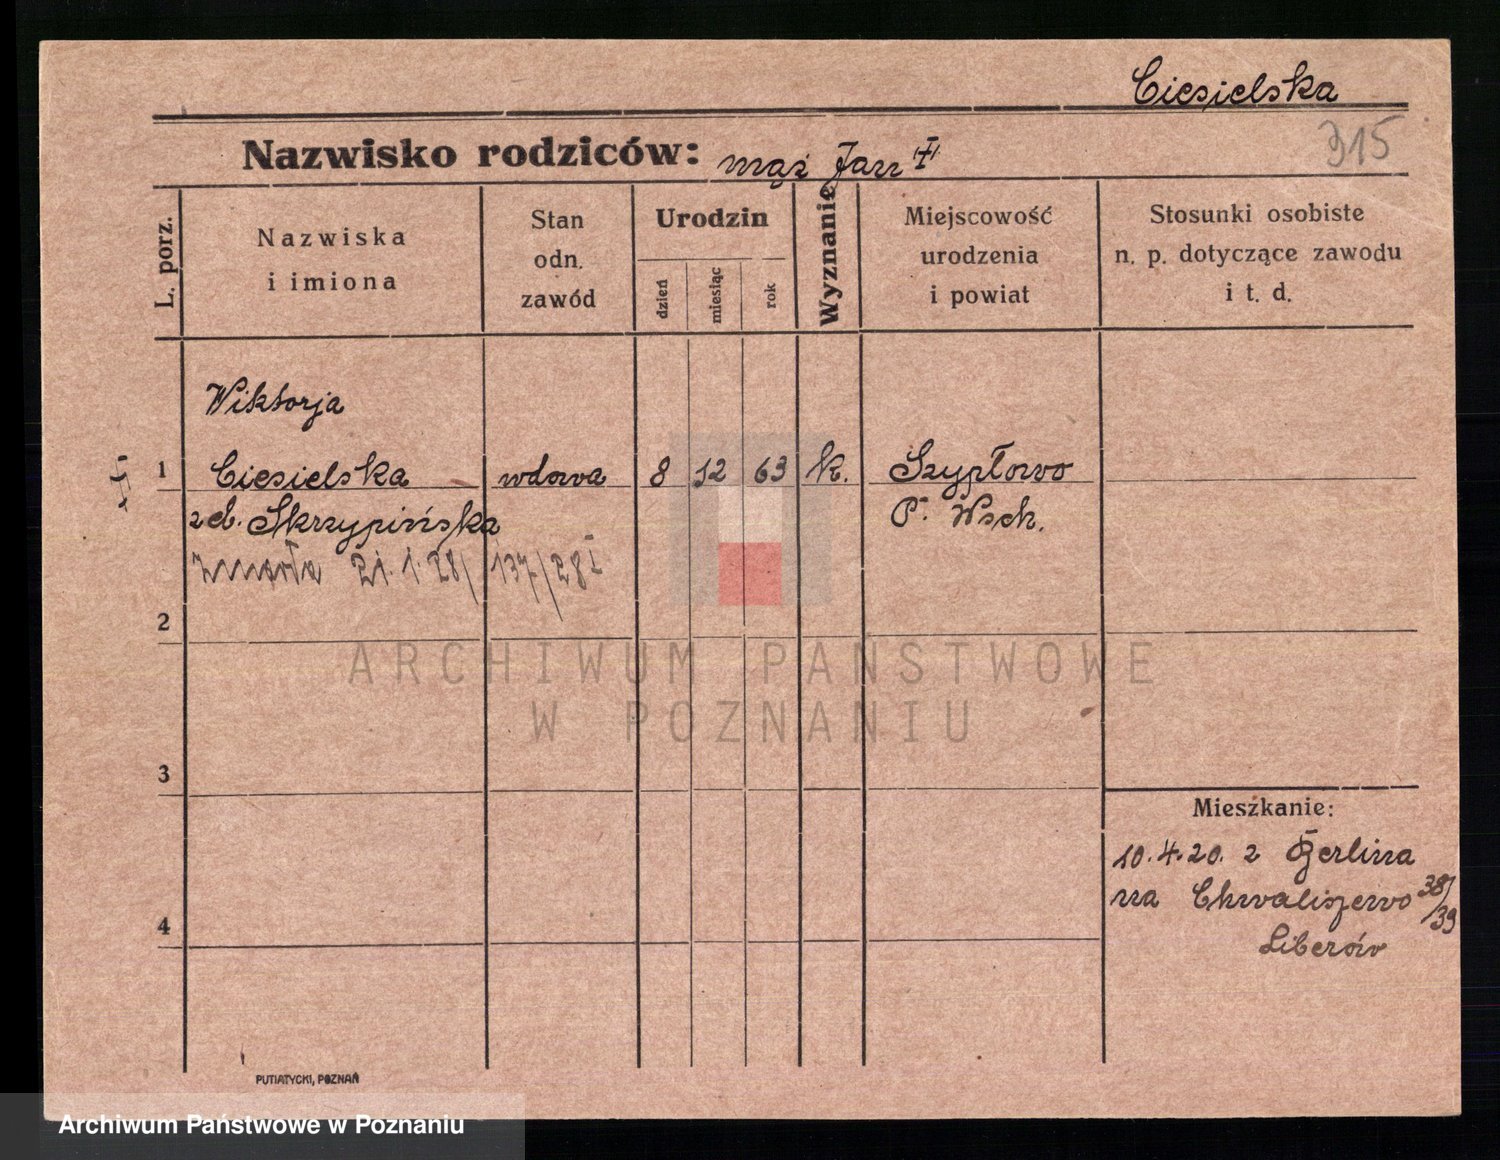 Ciesielska
315
Nazwisko rodziców: mąż Jan
L. porz.
Nazwiska
i imiona
Stan
odn.
zawód
Urodzin
dzień
miesiąc
rok
Wyznanie
Miejscowość
urodzenia
i powiat
Stosunki osobiste
n. p. dotyczące zawodu
i t. d.
Wiktorja
1 Ciesielska wdowa 8 12 63 k. Szypłowo
zd. Skrzypińska P. Wsch.
zmarła 21.1.28/ 137/28 I
2
3
4
Mieszkanie:
10.4.20. z Berlina
na Chwaliszewo 38/39
Liberów
PUTIATYCKI, POZNAŃ
ARCHIWUM PAŃSTWOWE
W POZNANIU
Archiwum Państwowe w Poznaniu